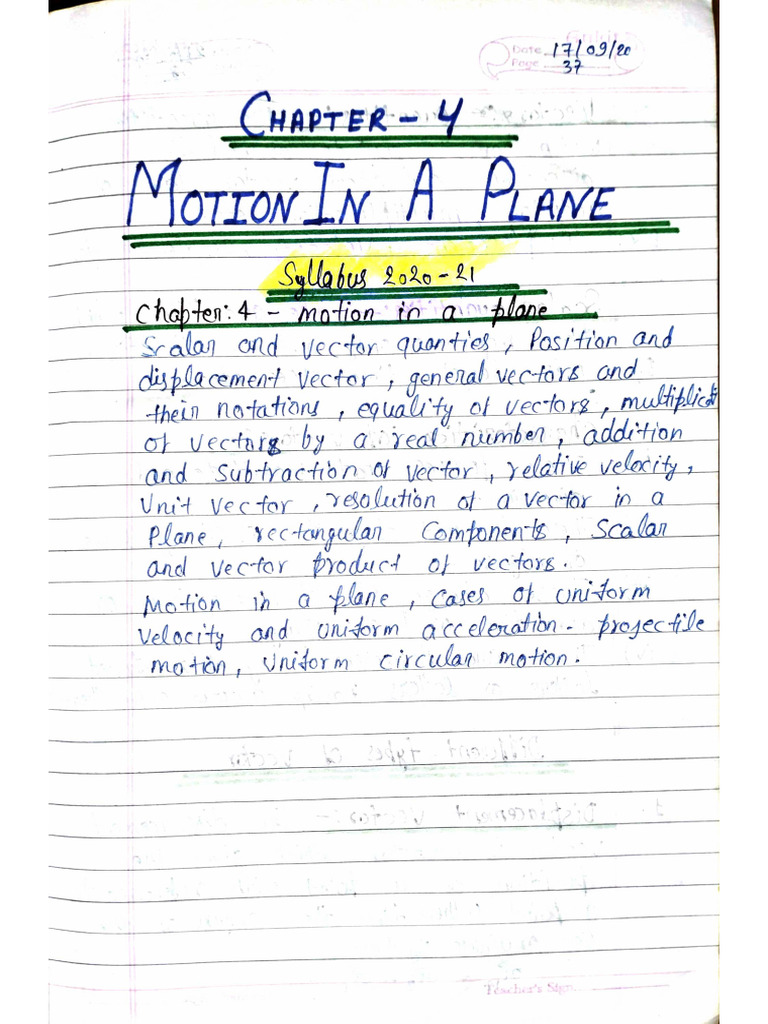 Date 17/09/20
Page 37
CHAPTER - 4
MOTION IN A PLANE
Syllabus 2020-21
Chapter: 4 - motion in a plane
Scalar and vector quanties, Position and
displacement vector, general vectors and
their notations, equality of vectors, multiplicat
of vectors by a real number, addition
and subtraction of vector, relative velocity,
Unit vector, resolution of a vector in a
Plane, rectangular Components, Scalar
and vector product of vectors.
Motion in a plane, cases of uniform
velocity and uniform acceleration. projectile
motion, uniform circular motion.
Teacher's Sign